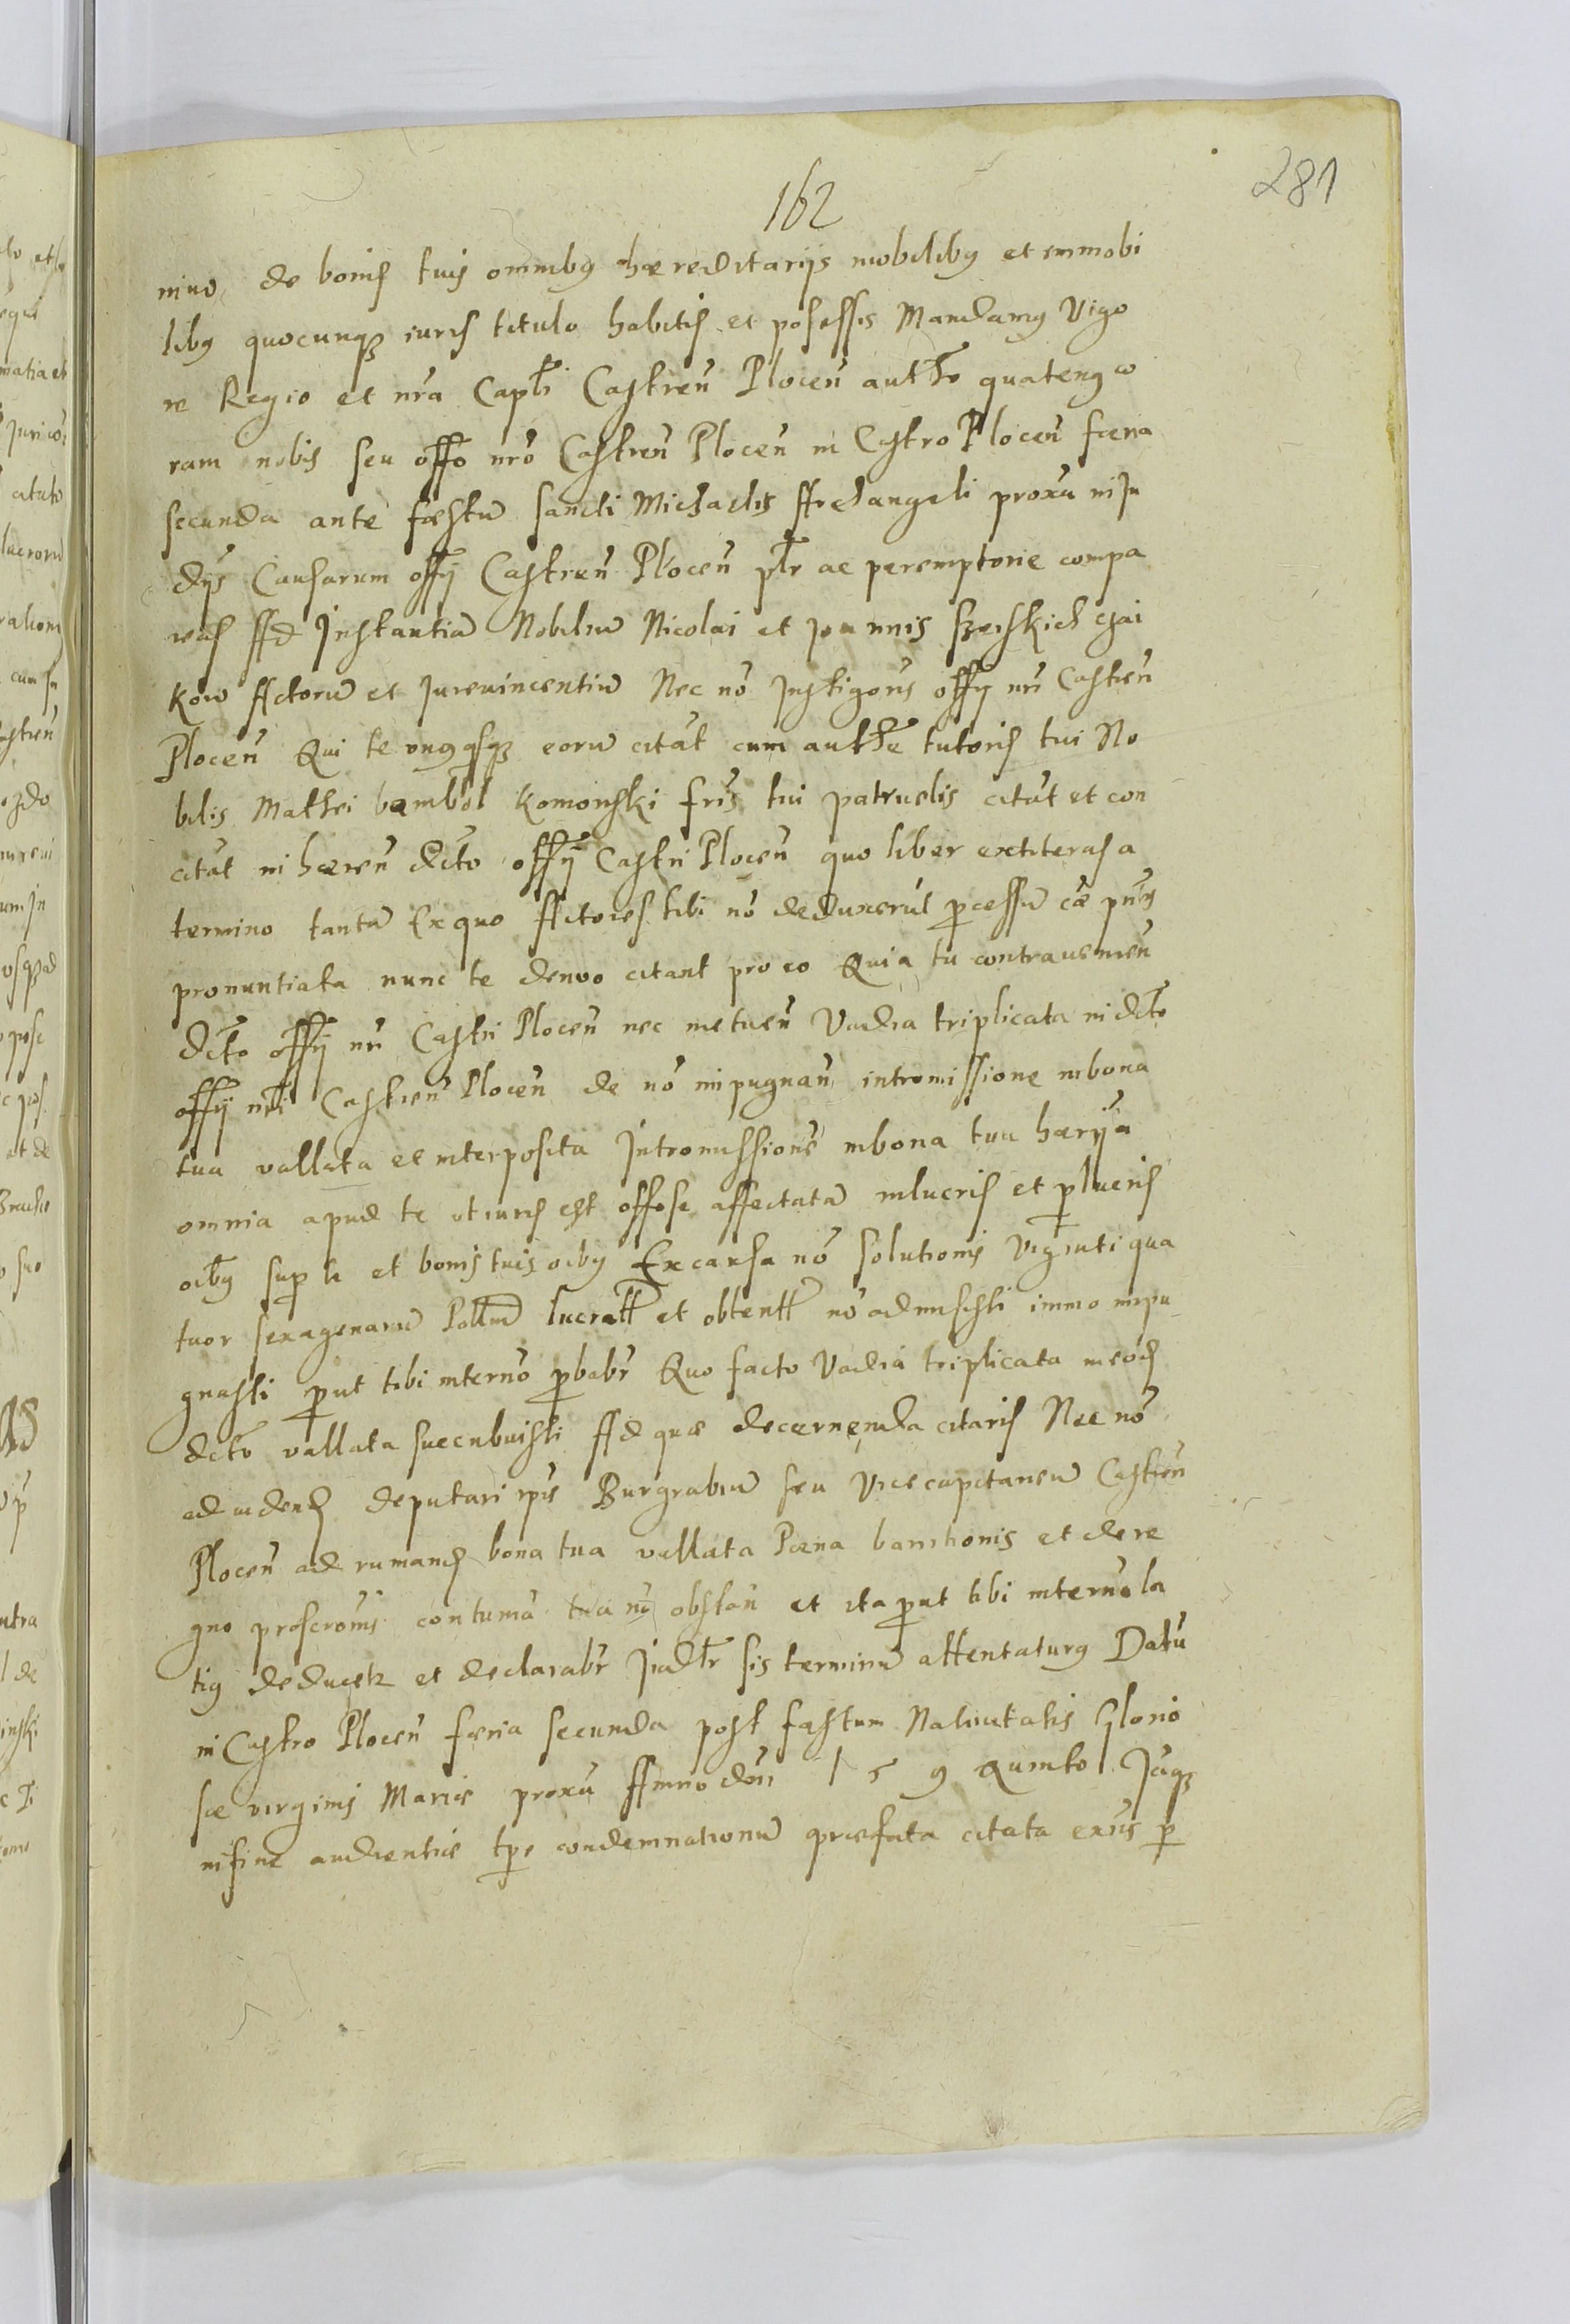 162
281
nino de bonis tuis omnibus hæreditarijs mobilibus et immobi
libus quocunque iuris titulo habitis et possessis Mandamus Vigo
re Regio et nra Capli Castren Plocen autho quatenus co
ram nobis seu offo nro Castren Plocen in Castro Plocen færia
secunda ante fæstu Sancti Michaelis Archangeli proxn in Ju
dijs Causarum offy Castren Plocen plr ac peremptorie compa
reas Ad Instantia Nobiliu Nicolai et Joannis
kow Actoru et Jurevincentiu Nec no Instigoris offy nri Castren
Plocen Qui te unusqsque eoru citat cum authe tutoris tui No
bilis Mathei bambol Komonski fris tui patruelis citat et con
citat in hæren dcto offy Castri Plocen quo liber extiteras a
termino tantu Ex quo Actores tibi no deduxerut pcessu cæ pnis
pronuntiata nunc te denuo citant pro eo Quia tu contravenien
dcto offy nri Castri Plocen nec metuen Vadia triplicata in dcto
offy nri Castren Plocen de no impugnan intromissione in bona
tua vallata et interposita Intromissione in bona tua hærya
omnia apud te ut iuris est offose affectata in lucris et plucris
oibus sup te et bonis tuis oibus Ex causa no solutionis Viginti qua
tuor sexagenaru Pollm lucratt et obtentt no admisisti immo impu
gnasti put tibi in terno pbabr Quo facto Vadia triplicata in eod
dcto vallata succubuisti Ad quæ decernenda citaris Nec no
ad vidend deputari ipis Burgrabiu seu Vicecapitaneu Castren
Plocen ad rumand bona tua vallata Pæna banitionis et de re
gno proscronis contuma tua no obstan et ita put tibi in terno la
tius deducetr et declarabr Judlr sis terminu attentaturus Datu
in Castro Plocen færia secunda post fæstum Nativitatis Glorio
sæ virginis Mariæ proxn Anno dni 1 5 9 Quinto Itaque
in fine audientiæ tpe condemnationu præfata citata exns p